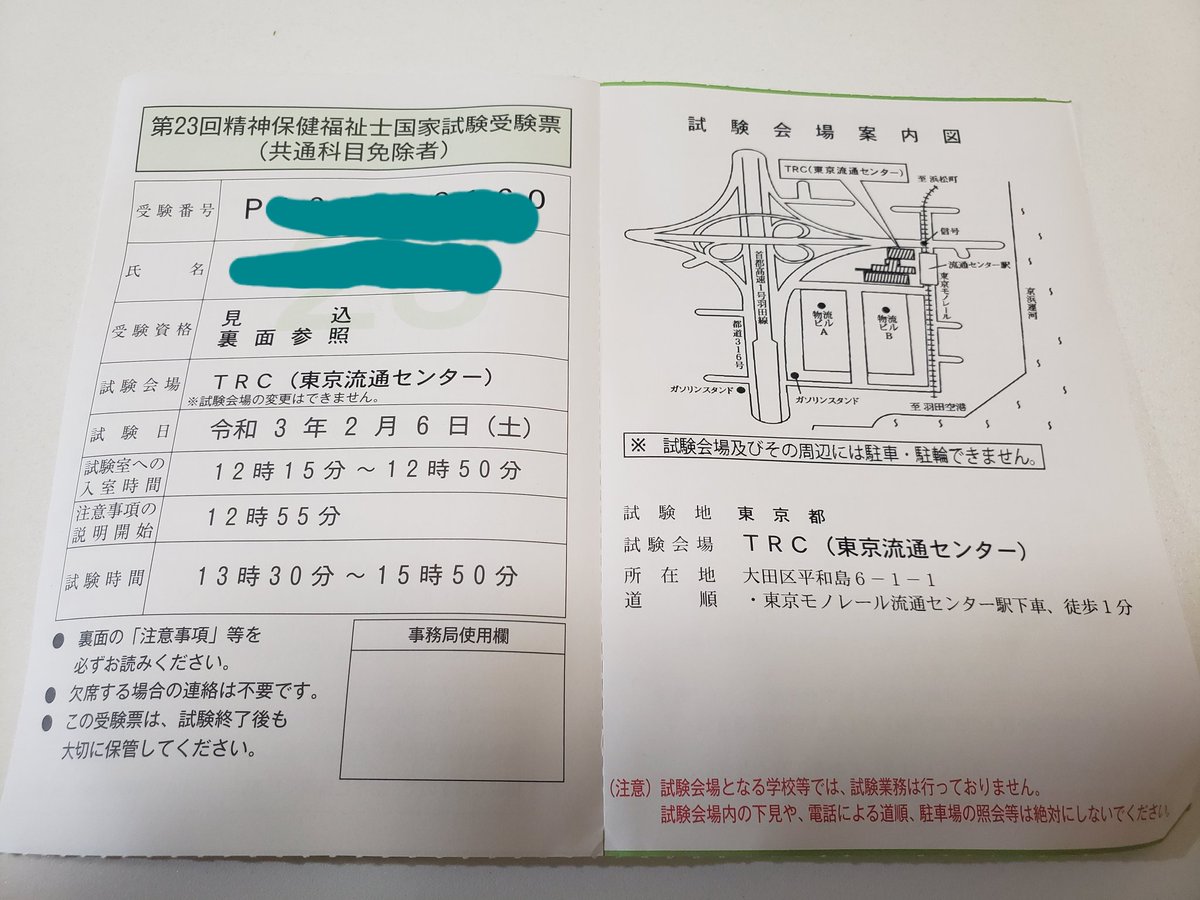 第23回精神保健福祉士国家試験受験票
（共通科目免除者）
受験番号 P
氏名
受験資格 見込
裏面参照
試験会場 ＴＲＣ（東京流通センター）
※試験会場の変更はできません。
試験日 令和３年２月６日（土）
試験室への入室時間 １２時１５分～１２時５０分
注意事項の説明開始 １２時５５分
試験時間 １３時３０分～１５時５０分
● 裏面の「注意事項」等を
必ずお読みください。
● 欠席する場合の連絡は不要です。
● この受験票は、試験終了後も
大切に保管してください。
事務局使用欄
試験会場案内図
TRC（東京流通センター）
至 浜松町
信号
流通センター駅
東京モノレール
京浜運河
首都高速1号羽田線
都道316号
物流ビルA
物流ビルB
ガソリンスタンド
ガソリンスタンド
至 羽田空港
※ 試験会場及びその周辺には駐車・駐輪できません。
試験地 東京都
試験会場 ＴＲＣ（東京流通センター）
所在地 大田区平和島６－１－１
道順 ・東京モノレール流通センター駅下車、徒歩１分
（注意）試験会場となる学校等では、試験業務は行っておりません。
試験会場内の下見や、電話による道順、駐車場の照会等は絶対にしないでください。